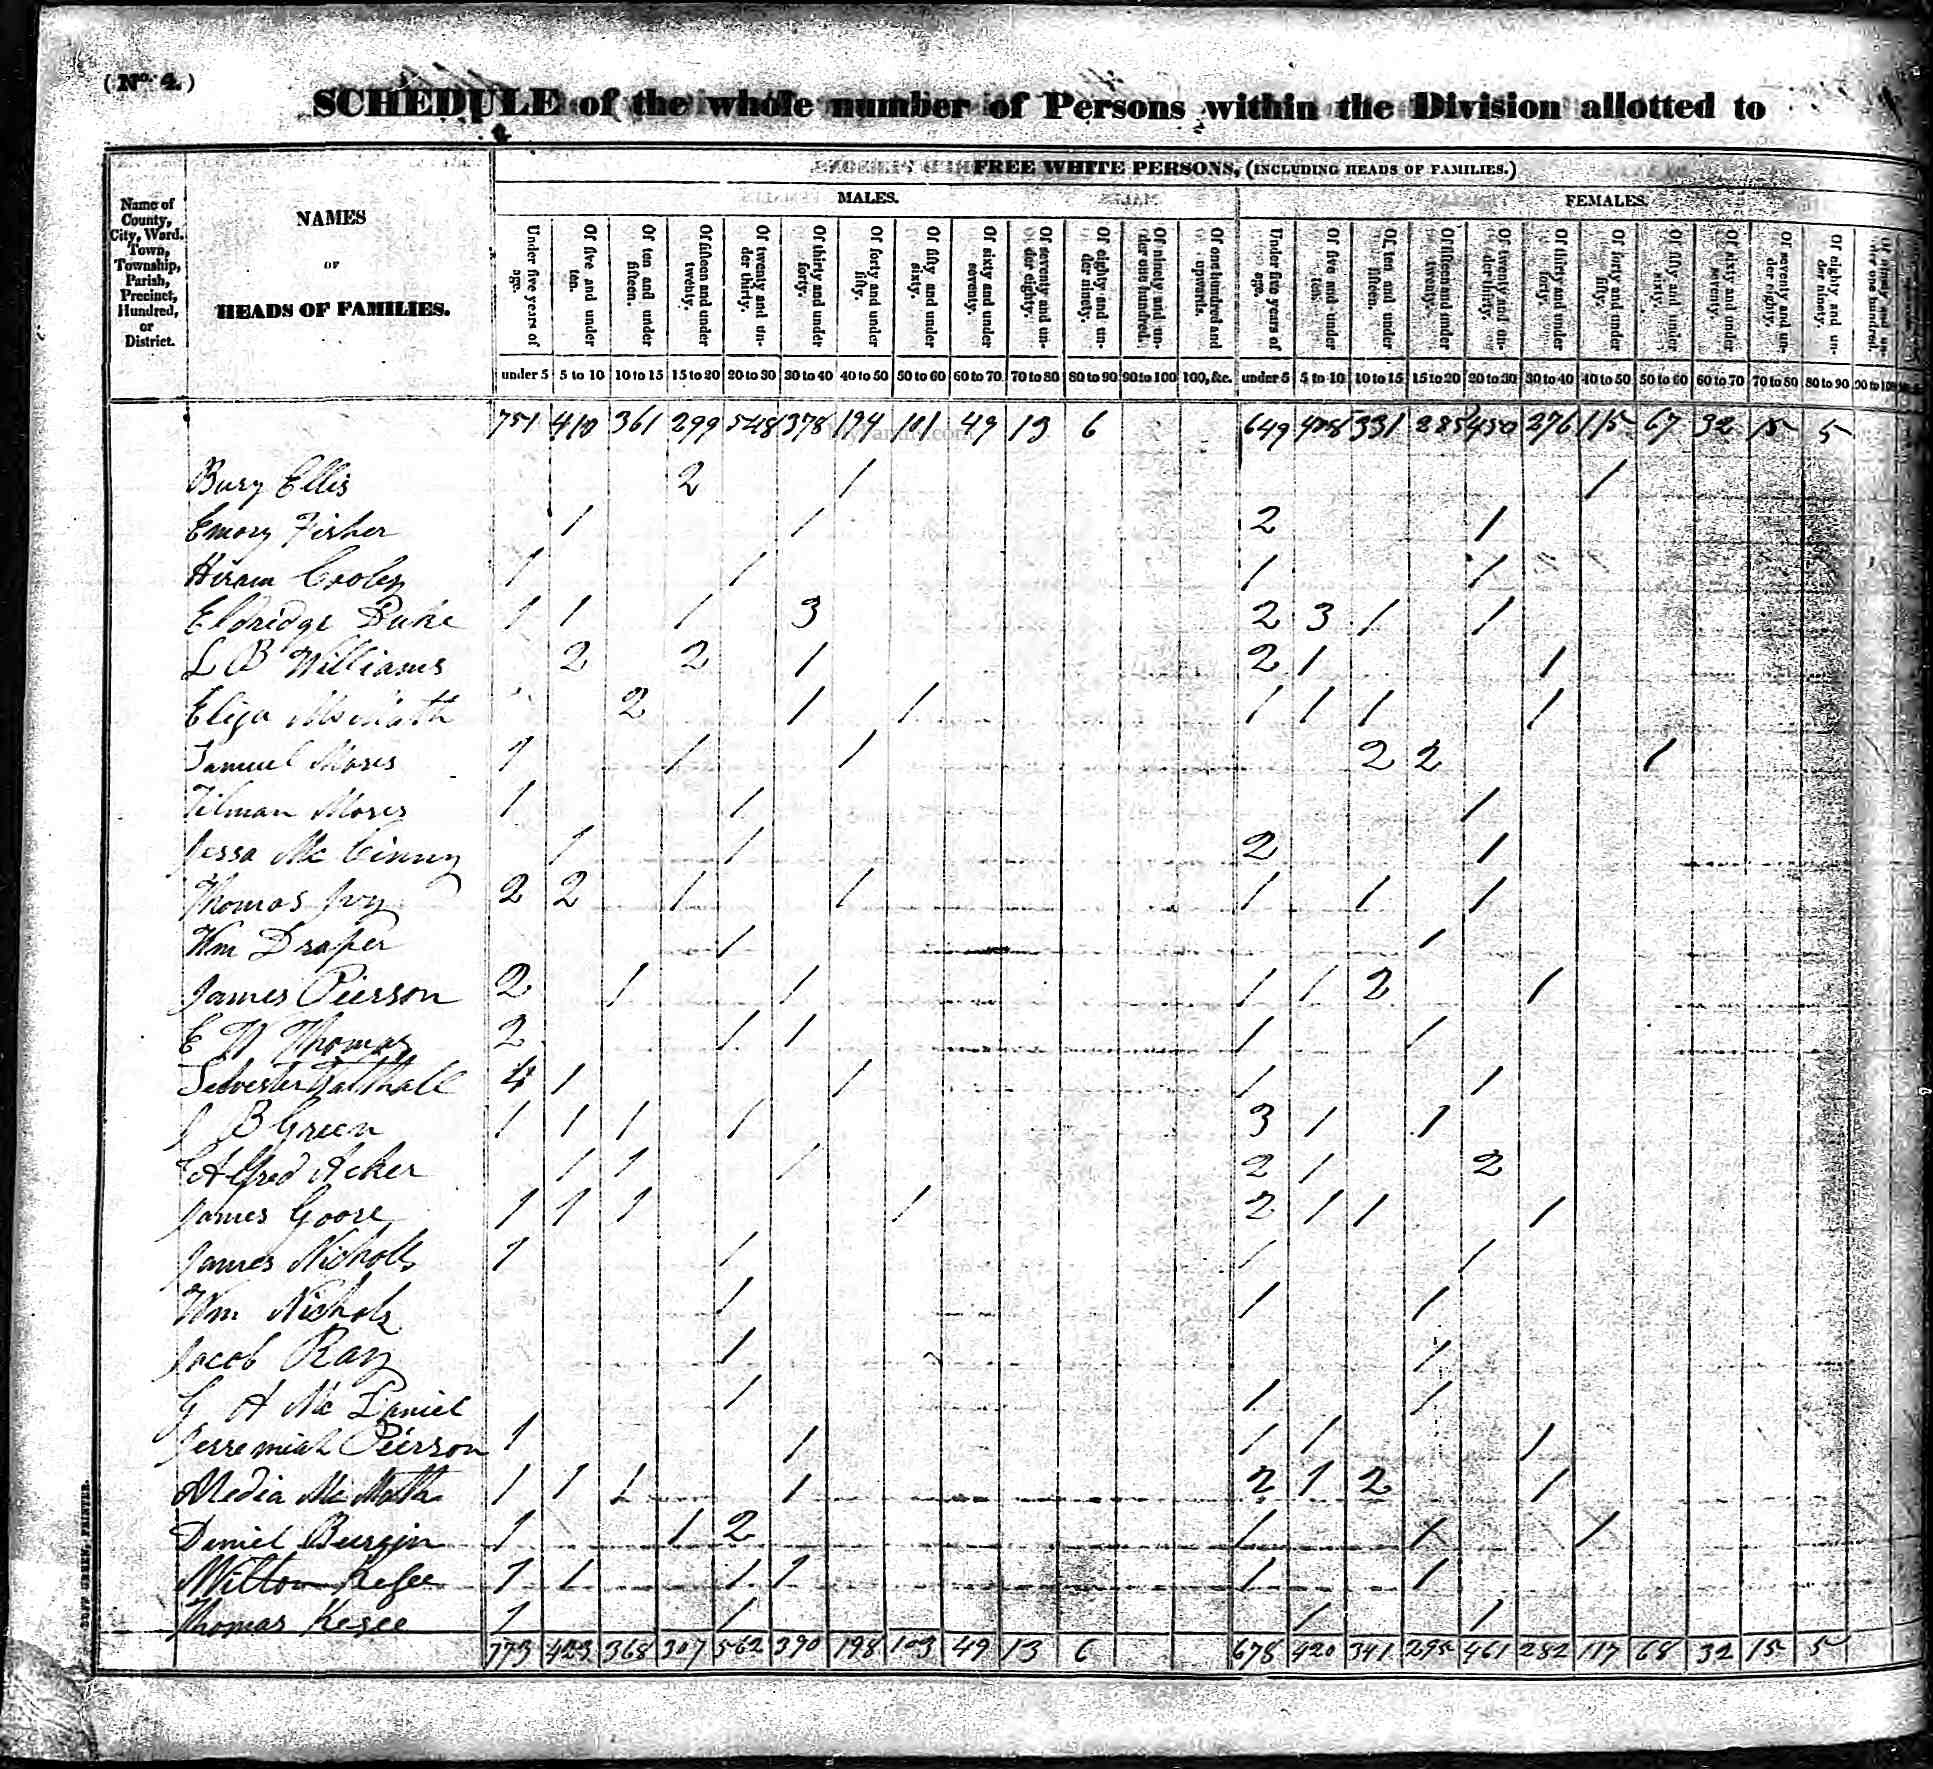 (No. 4.)
SCHEDULE of the whole number of Persons within the Division allotted to
FREE WHITE PERSONS, (INCLUDING HEADS OF FAMILIES.)
MALES. FEMALES.
Name of County, City, Ward, Town, Township, Parish, Precinct, Hundred, or District.
NAMES OF HEADS OF FAMILIES.
Under five years of age. Of five and under ten. Of ten and under fifteen. Of fifteen and under twenty. Of twenty and under thirty. Of thirty and under forty. Of forty and under fifty. Of fifty and under sixty. Of sixty and under seventy. Of seventy and under eighty. Of eighty and under ninety. Of ninety and under one hundred. Of one hundred and upwards. Under five years of age. Of five and under ten. Of ten and under fifteen. Of fifteen and under twenty. Of twenty and under thirty. Of thirty and under forty. Of forty and under fifty. Of fifty and under sixty. Of sixty and under seventy. Of seventy and under eighty. Of eighty and under ninety. Of ninety and under one hundred.
under 5 5 to 10 10 to 15 15 to 20 20 to 30 30 to 40 40 to 50 50 to 60 60 to 70 70 to 80 80 to 90 90 to 100 100, &c. under 5 5 to 10 10 to 15 15 to 20 20 to 30 30 to 40 40 to 50 50 to 60 60 to 70 70 to 80 80 to 90 90 to 100
751 410 361 299 548 378 194 101 49 13 6 649 408 331 285 450 276 115 67 32 15 5
Bury Ellis 2 1 1
Emory Fisher 1 1 2 1
Hiram Cooley 1 1 1 1
Eldridge Duke 1 1 1 3 2 3 1 1
L B Williams 2 2 1 2 1 1
Eliza 2 1 1 1 1 1 1
Samuel Moses 1 1 1 2 2 1
Tilman Moses 1 1 1
Jessa Mc Cinny 1 1 2 1
Thomas Ivy 2 2 1 1 1 1 1
Wm Draper 1 1
James Pierson 2 1 1 1 1 2 1
E W Thomas 2 1 1 1 1
Selvester 4 1 1 1 1
J B Green 1 1 1 1 3 1 1
Alfred Acker 1 1 1 2 1 2
James Goore 1 1 1 1 2 1 1 1
James Nichols 1 1 1 1
Wm Nichols 1 1 1
Jacob Ray 1 1
G A Mc Daniel 1 1 1
Jerremiah Pierson 1 1 1 1 1
Media Mc Math 1 1 1 1 2 1 2 1
Daniel Burgin 1 1 2 1 1 1
Milton Kesee 1 1 1 1 1 1
Thomas Kesee 1 1 1 1
773 423 368 307 562 390 198 103 49 13 6 678 420 341 295 461 282 117 68 32 15 5
DUFF GREEN, PRINTER.